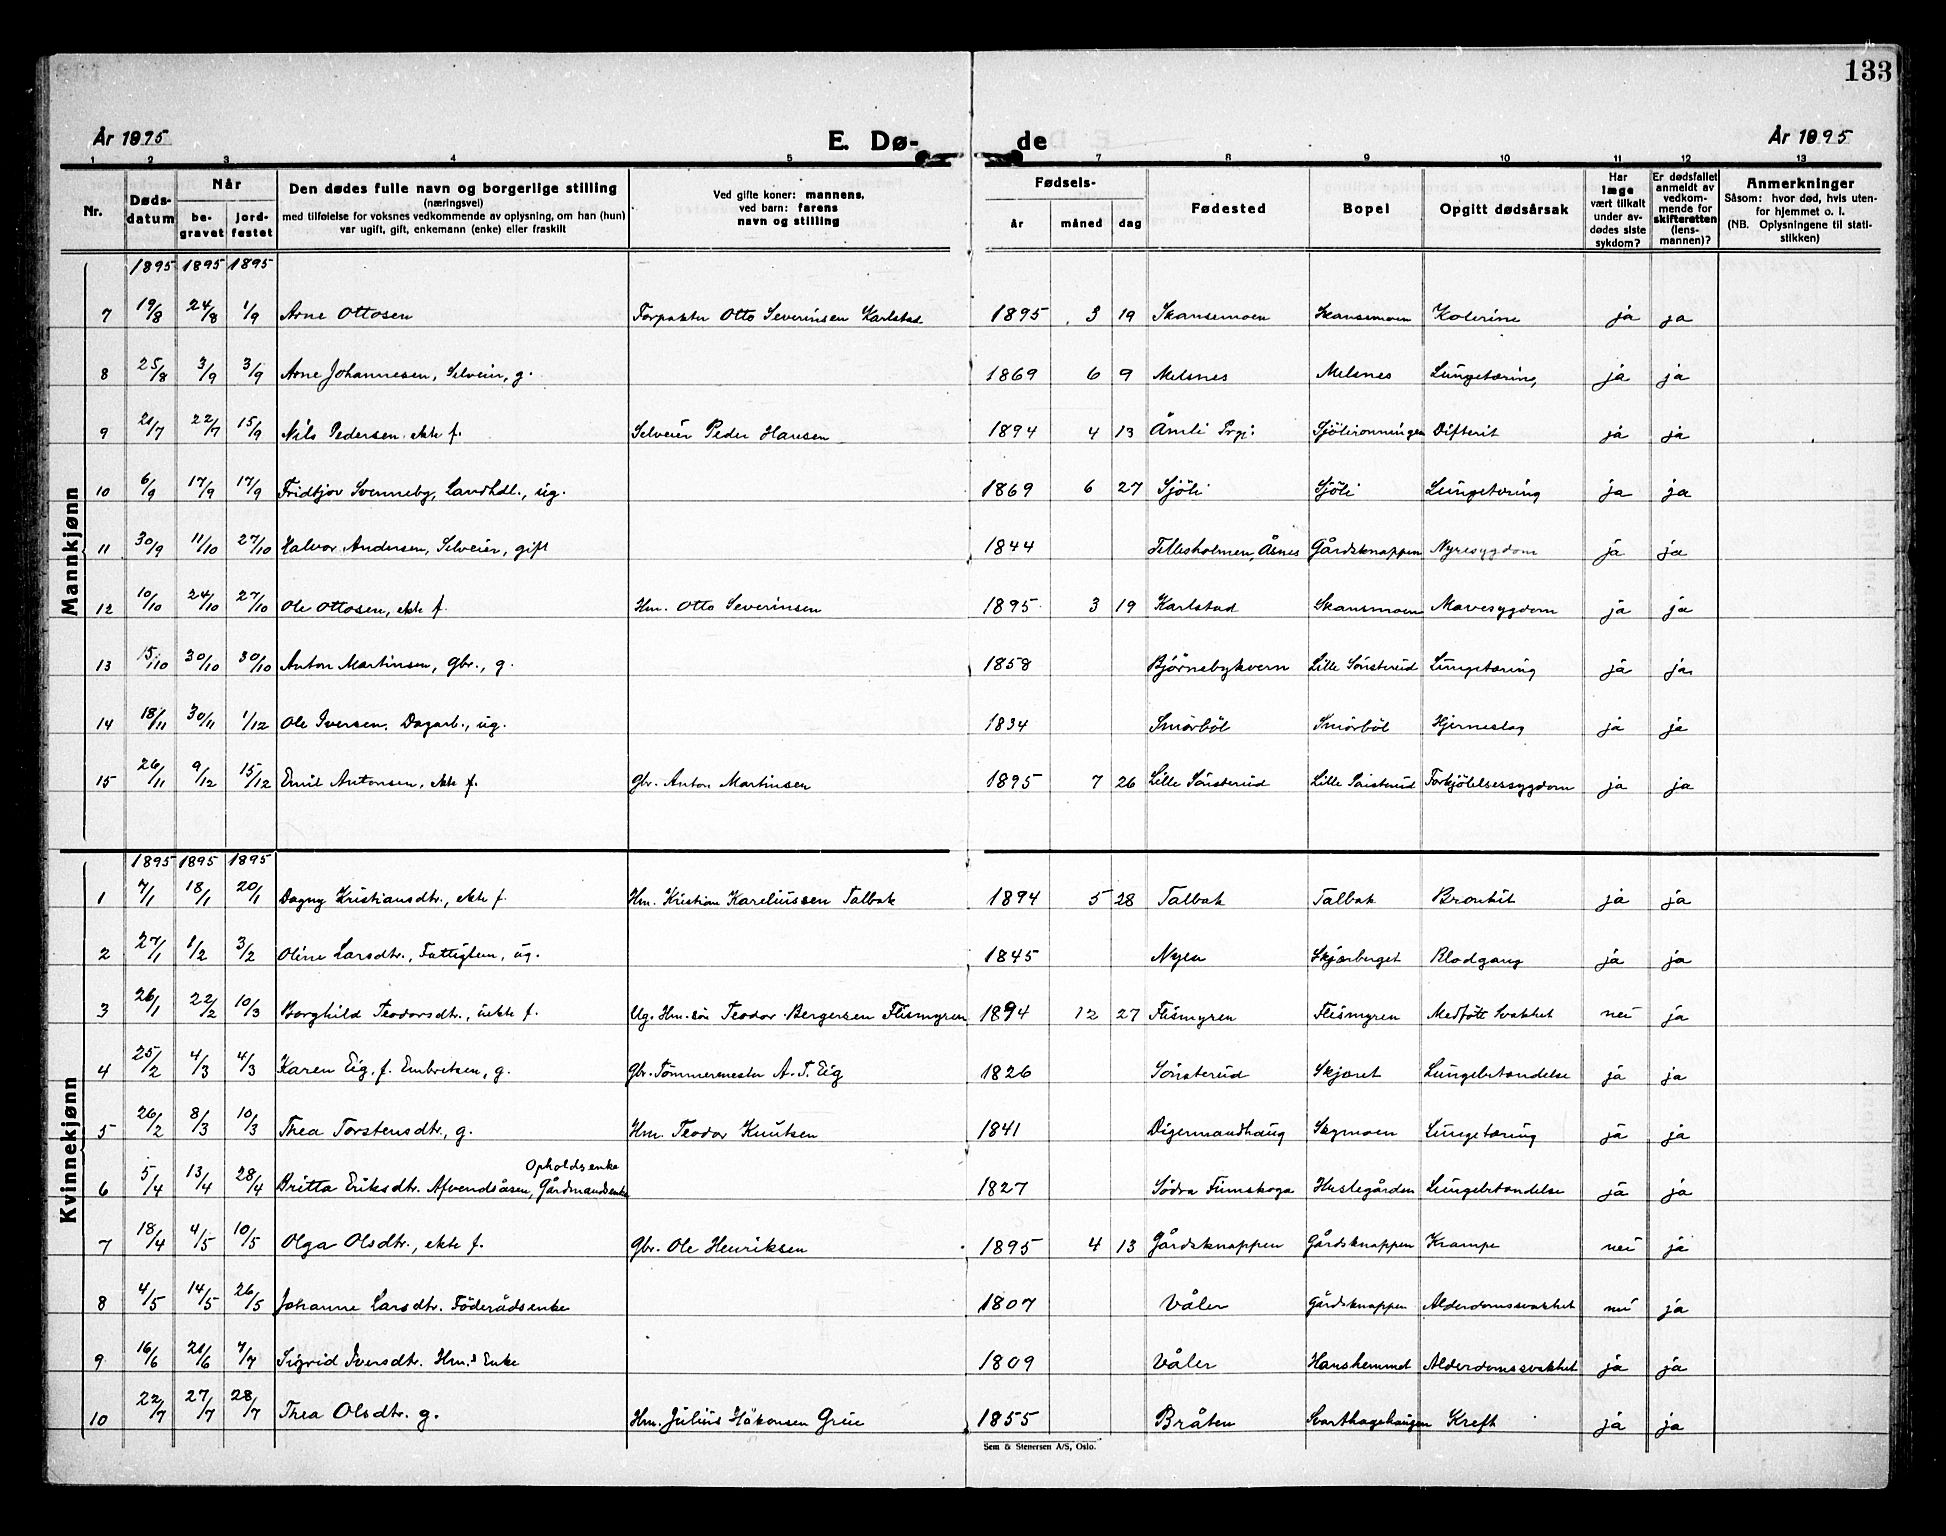 133
År 1895 E. Dø- de År 1895
1 2 3 4 5 7 8 9 10 11 12 13
Nr. Døds-datum Når be-gravet jord-festet Den dødes fulle navn og borgerlige stilling (næringsvei) med tilføielse for voksnes vedkommende av oplysning, om han (hun) var ugift, gift, enkemann (enke) eller fraskilt Ved gifte koner: mannens, ved barn: farens navn og stilling Fødsels- år måned dag Fødested Bopel Opgitt dødsårsak Har læge vært tilkalt under av-dødes siste sykdom? Er dødsfallet anmeldt av vedkom-mende for skifteretten (lens-mannen)? Anmerkninger Såsom: hvor død, hvis uten-for hjemmet o. l. (NB. Oplysningene til stati-stikken)
Mannkjønn
1895 1895 1895
7 19/8 24/8 1/9 Arne Ottosen Forpakter Otto Severinsen Karlstad 1895 3 19 Skansemoen Skansemoen Kolerine ja ja
8 25/8 3/9 3/9 Arne Johannesen, Selveier, g. 1869 6 9 Melsnes Melsnes Lungetæring ja ja
9 21/7 22/7 15/9 Nils Pedersen ekte f. Selveier Peder Hansen 1894 4 13 Åmli Prgj. Sjölironningen Difterit ja ja
10 6/9 17/9 17/9 Fridtjov Svenneby, Landhdl., ug. 1869 6 27 Sjöli Sjöli Lungetæring ja ja
11 30/9 11/10 27/10 Halvor Andersen, Selveier, gift 1844 Tellesholmen, Åsnes Gårdsknappen Nyresygdom ja ja
12 10/10 24/10 27/10 Ole Ottosen, ekte f. Hm. Otto Severinsen 1895 3 19 Karlstad Skansmoen Mavesygdom ja ja
13 15/10 30/10 30/10 Anton Martinsen, Gbr., g. 1858 Bjørnebykvern Lille Sönsterud Lungetæring ja ja
14 18/11 30/11 1/12 Ole Iversen, Dagarb., ug. 1834 Smörböl Smörböl Hjerneslag ja ja
15 26/11 9/12 15/12 Emil Antonsen, ekte f. Gbr. Anton Martinsen 1895 7 26 Lille Sönsterud Lille Sönsterud Forkjölelsessygdom ja ja
Kvinnekjønn
1895 1895 1895
1 7/1 18/1 20/1 Dagny Kristiansdtr., ekte f. Hm. Kristian Kareliussen Talbak 1894 5 28 Talbak Talbak Bronkit ja ja
2 27/1 1/2 3/2 Oline Larsdtr., Fattiglem, ug. 1845 Nyen Skjærberget Blodgang ja ja
3 26/1 22/2 10/3 Borghild Teodorsdtr., uekte f. Ug. Hm.sön Teodor Bergersen Flismyren 1894 12 27 Flismyren Flismyren Medfött Svakhet nei ja
4 25/2 4/3 4/3 Karen Eig, f. Embretsen, g. Gbr. Tömmermester A. T. Eig 1826 Sönsterud Skjæret Lungebetændelse ja ja
5 26/2 8/3 10/3 Thea Torstensdtr., g. Hm. Teodor Knutsen 1841 Digermandhaug Skymoen Lungetæring ja ja
6 5/4 13/4 28/4 Britta Eriksdtr. Afvendsåsen, Gårdmandsenke Opholdsenke 1827 Södra Finnskoga Huslegården Lungebetændelse ja ja
7 18/4 4/5 10/5 Olga Olsdtr., ekte f. Gbr. Ole Henriksen 1895 4 13 Gårdsknappen Gårdsknappen Krampe nei ja
8 4/5 14/5 26/5 Johanne Larsdtr. Föderådsenke 1807 Våler Gårdsknappen Alderdomssvakhet nei ja
9 16/6 21/6 7/7 Sigrid Iversdtr. Hm.s Enke 1809 Våler Hanshemmet Alderdomssvakhet ja ja
10 22/7 27/7 28/7 Thea Olsdtr. g. Hm. Julius Håkonsen Grue 1855 Bråten Svarthagehaugen Kreft ja ja
Sem & Stenersen A/S, Oslo.